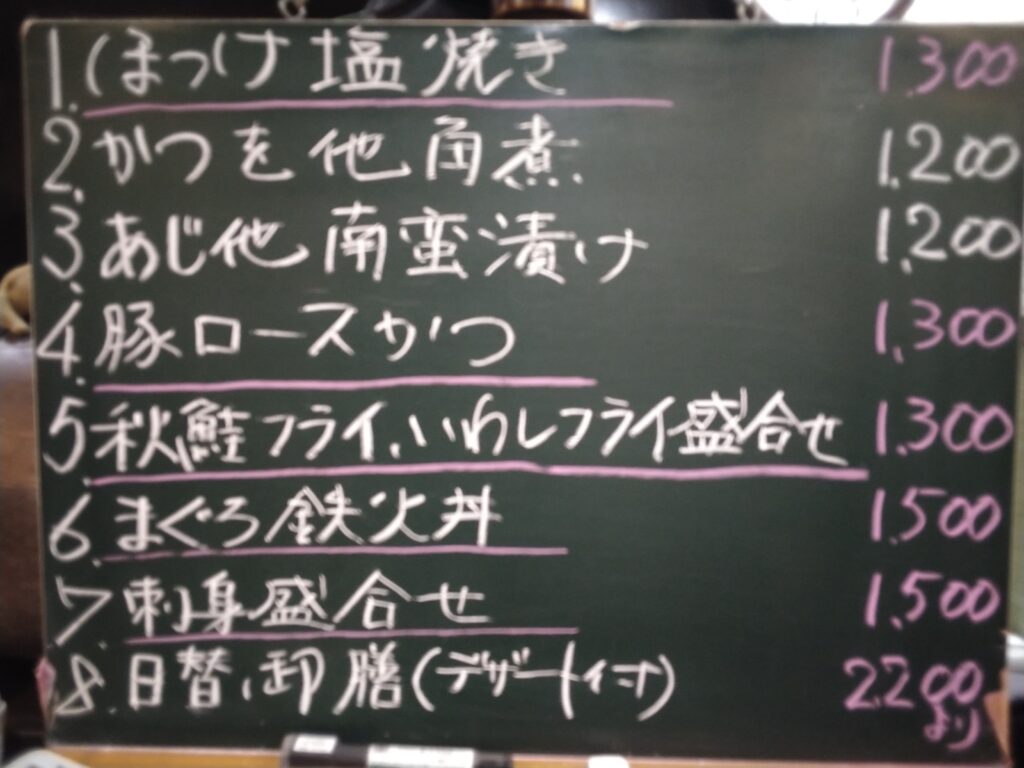 1. ほっけ塩焼き 1,300
2. かつを他角煮 1,200
3. あじ他南蛮漬け 1,200
4. 豚ロースかつ 1,300
5. 秋鮭フライ、いわしフライ盛合せ 1,300
6. まぐろ鉄火丼 1,500
7. 刺身盛合せ 1,500
8. 日替り御膳(デザート付) 2,200
より